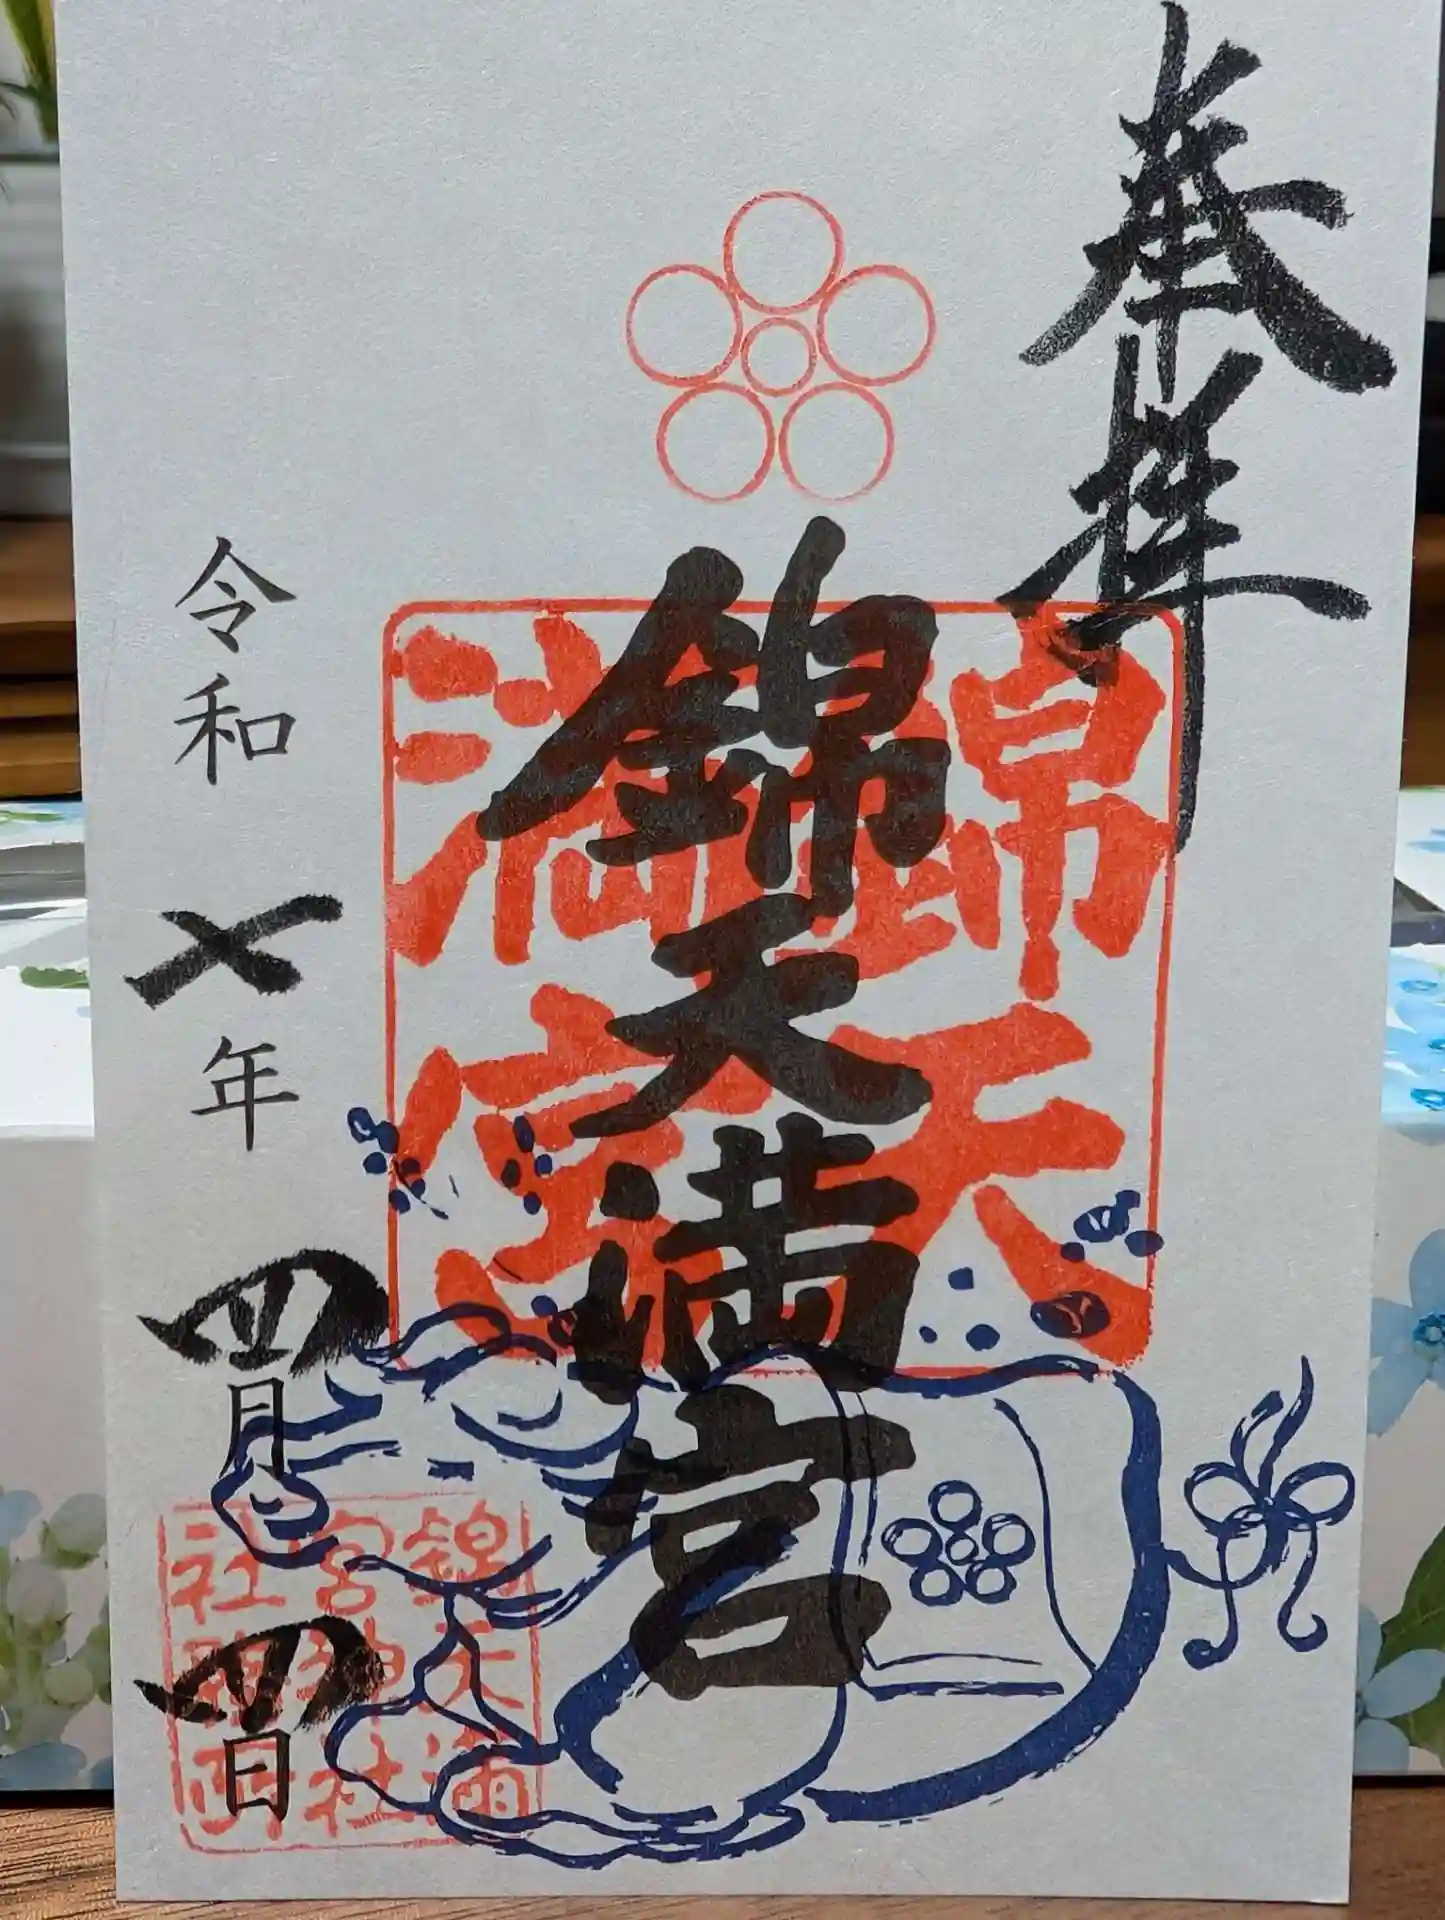 奉拝
錦天満宮
錦天満宮
令和七年四月四日
錦天満
宮神社
社務所印